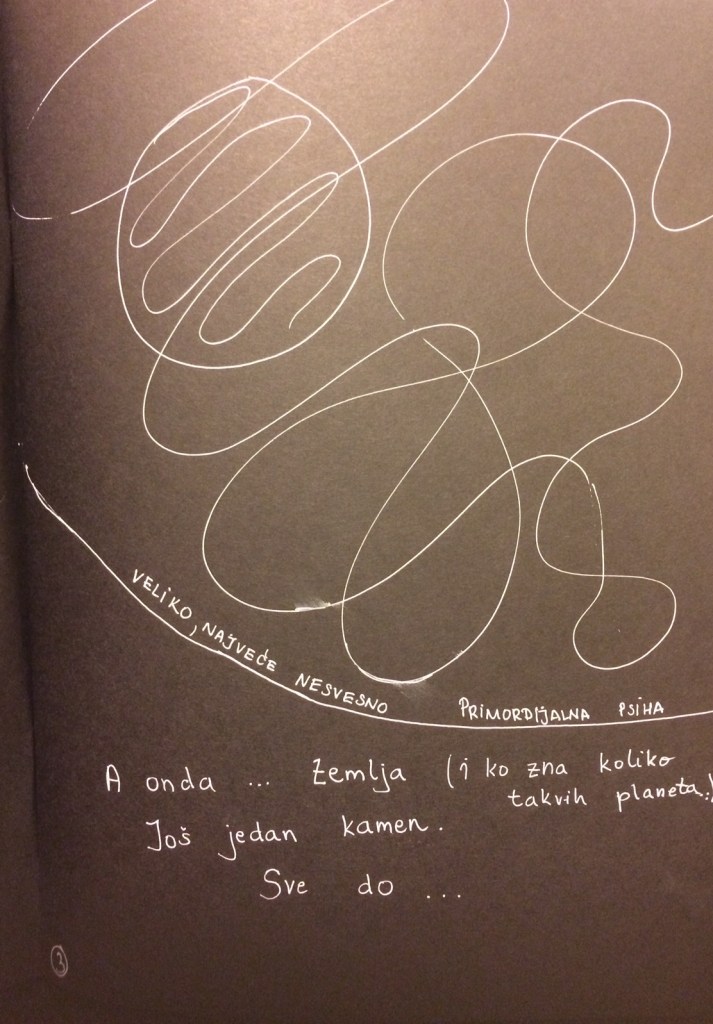 VELIKO, NAJVEĆE NESVESNO
PRIMORDIJALNA PSIHA
A onda ... Zemlja (i ko zna koliko
takvih planeta!)
Još jedan kamen.
Sve do ...
3